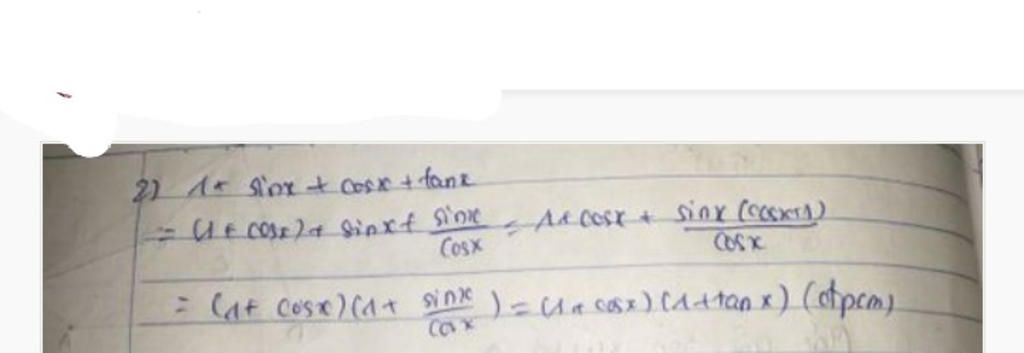 2) 1 + sinx + cosx + tanx
= (1 + cosx) + sinx + sinx/cosx = 1 + cosx + sinx (cosx+1)/cosx
= (1 + cosx)(1 + sinx/cosx) = (1 + cosx)(1 + tanx) (đpcm)